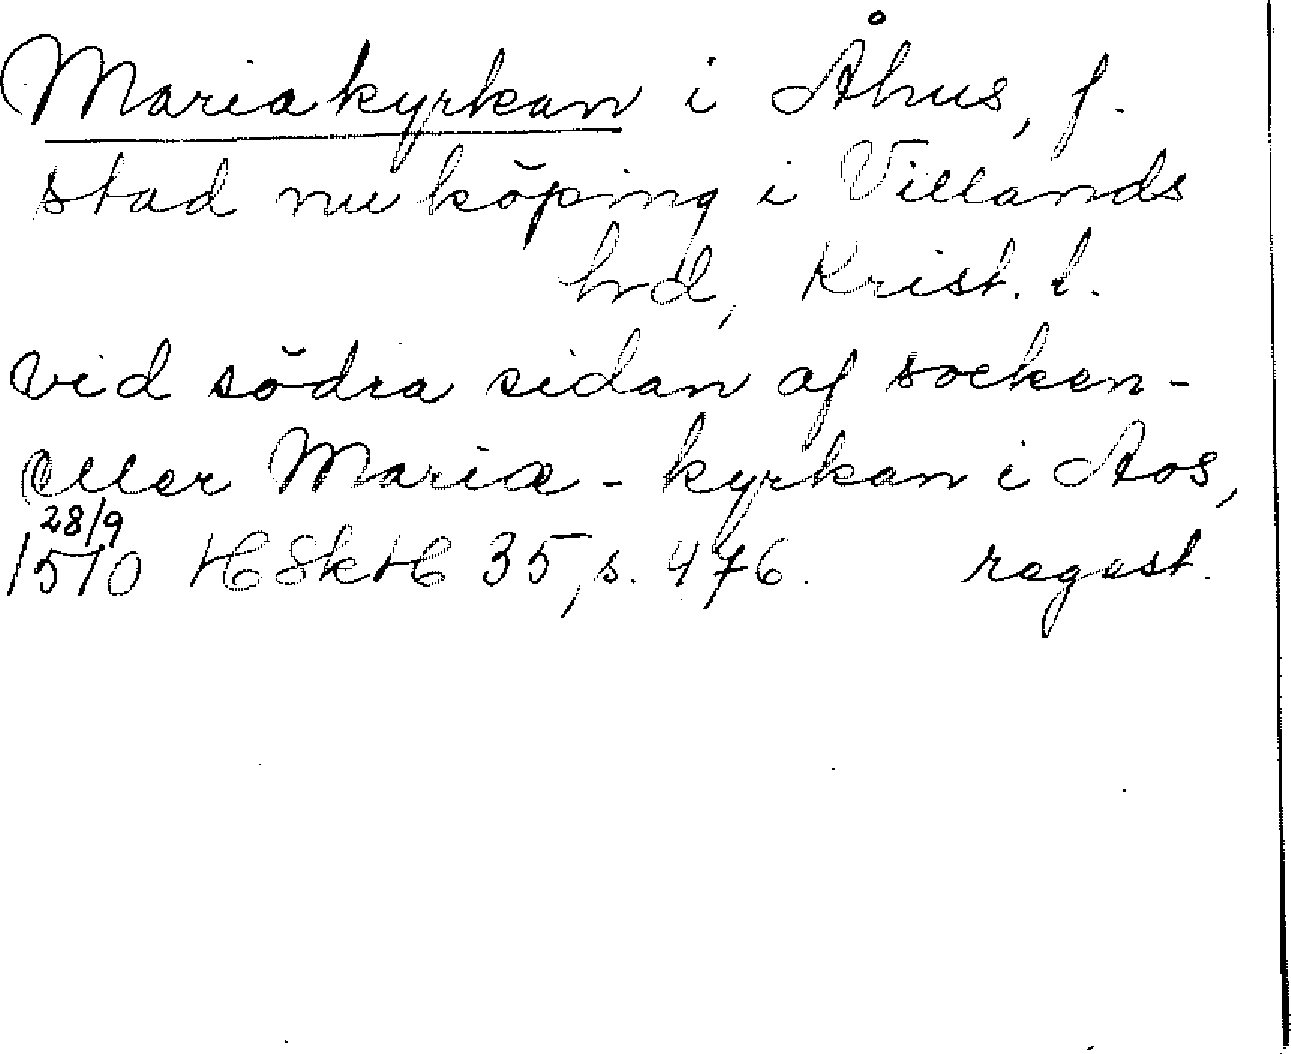 Mariakyrkan i Åhus, f.
stad nu köping i Villands
hrd, Krist. l.
vid södra sidan af socken-
eller Maria-kyrkan i Aos,
28/9
1510 HSkH 35, s. 476. regest.